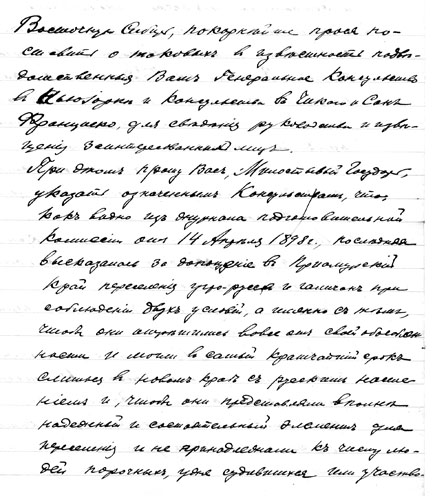 Восточную Сибирь, покорнѣйше прося по-
ставить о таковыхъ в извѣстность подвѣ-
домственныя Вамъ Генеральное Консульство
в Нью Іоркѣ и Консульства в Чикаго и Санъ
Франциско, для свѣдѣнія руководства и извѣ-
щенія заинтересованныхъ лицъ.
При этомъ прошу Васъ, Милостивый Государь,
указать означеннымъ Консульствамъ, что,
какъ видно изъ журнала подготовительной
комиссіи отъ 14 Апрѣля 1898 г., послѣдняя
высказалась за допущеніе в Приамурскій
край переселенія угро-руссовъ и галичанъ при
соблюденіи двухъ условій, а именно съ тѣмъ,
чтобы они отрѣшились вовсе отъ своей обособлен-
ности и могли в самый кратчайшій срокъ
слиться в новомъ краѣ съ русскимъ населе-
ніемъ и, чтобы они представляли вполнѣ
надежный и состоятельный элементъ для
переселенія и не принадлежали къ числу лю-
дей порочныхъ, уже судившихся или участво-